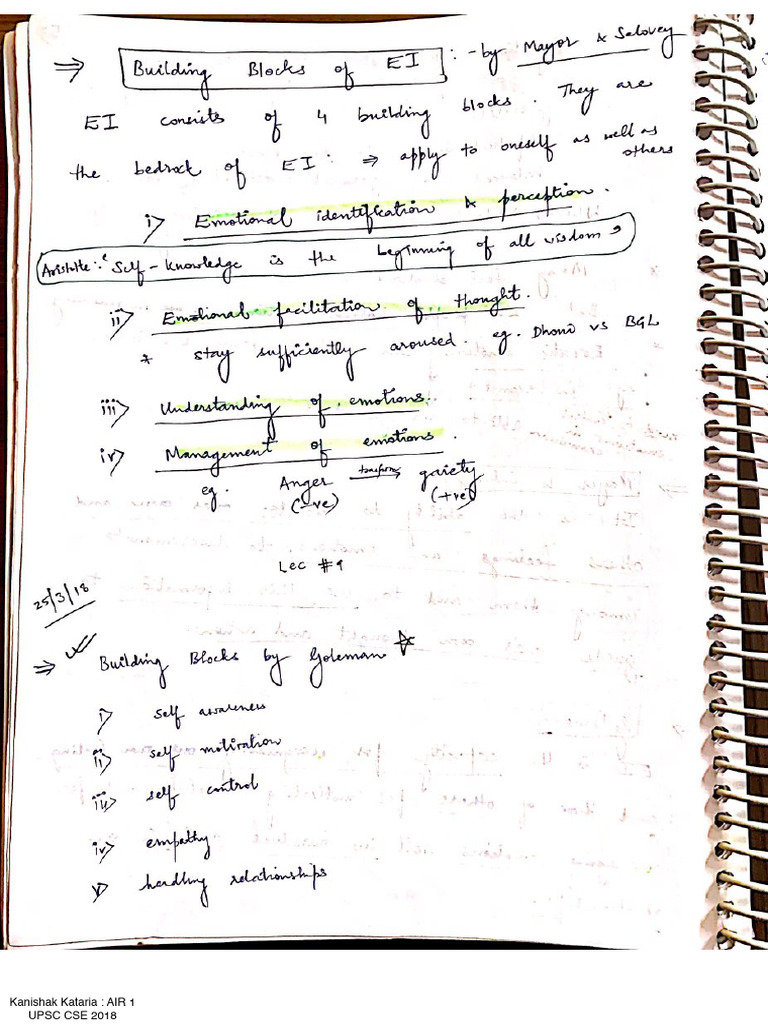 ⇒ Building Blocks of EI :- by Mayor & Salovey
EI consists of 4 building blocks. They are
the bedrock of EI: ⇒ apply to oneself as well as
others
i> Emotional identification & perception.
Aristotle: "Self-knowledge is the beginning of all wisdom"
ii> Emotional facilitation of thought.
* stay sufficiently aroused. eg. Dhoni vs BGL
iii> Understanding of emotions.
iv> Management of emotions.
eg. Anger transform→ gaiety
(-ve) (+ve)
Lec #9
25/3/18
⇒ Building Blocks by Goleman ☆
i> self awareness
ii> self motivation
iii> self control
iv> empathy
v> handling relationships
Kanishak Kataria : AIR 1
UPSC CSE 2018